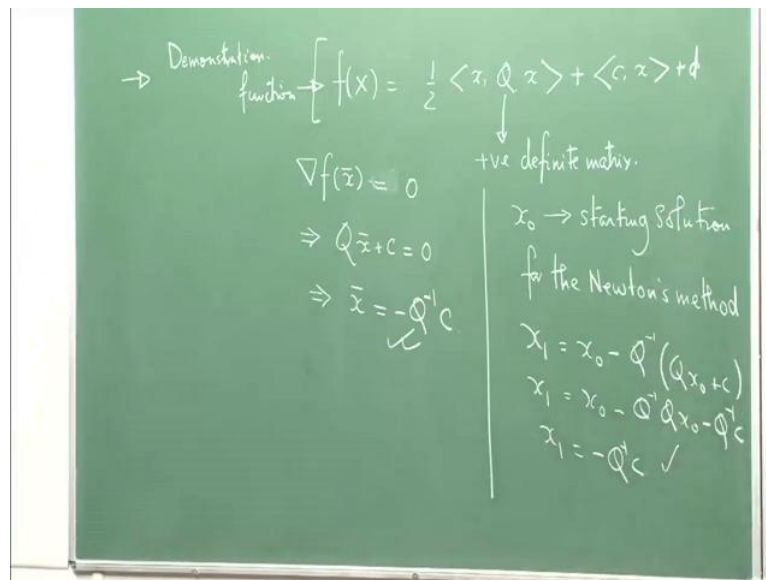 → Demonstration.
function → [ f(x) = 1/2 <x, Q x> + <c, x> + d
↓
+ve definite matrix.
∇f(x̄) = 0
⇒ Qx̄ + c = 0
⇒ x̄ = -Q⁻¹c ✓
x₀ → starting solution
for the Newton's method
x₁ = x₀ - Q⁻¹(Qx₀ + c)
x₁ = x₀ - Q⁻¹Qx₀ - Q⁻¹c
x₁ = -Q⁻¹c ✓